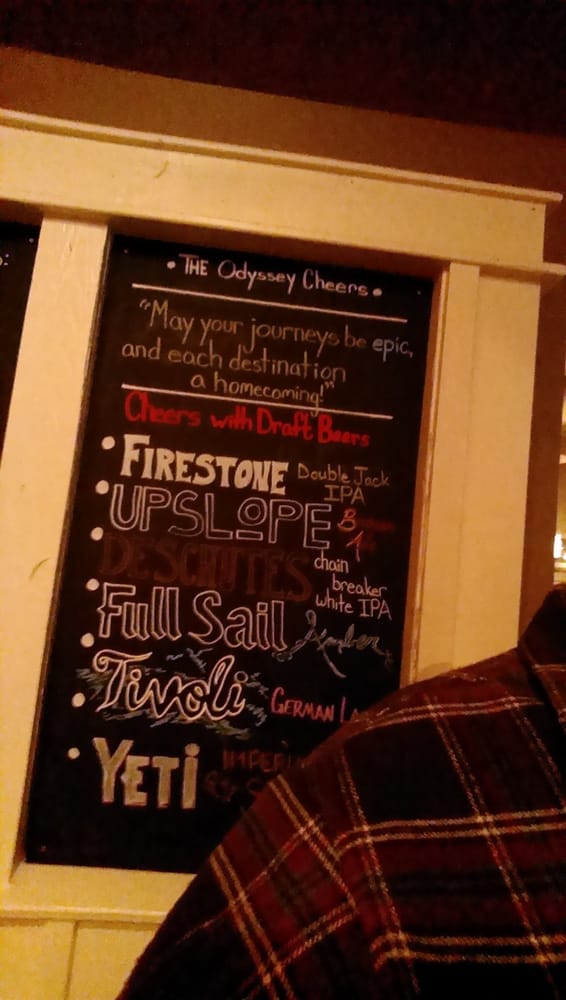 • THE Odyssey Cheers •
"May your journeys be epic,
and each destination
a homecoming!"
Cheers with Draft Beers
• FIRESTONE Double Jack
IPA
• UPSLOPE Brown
Ale
• DESCHUTES chain
breaker
white IPA
• Full Sail Amber
• Tivoli GERMAN
• YETI